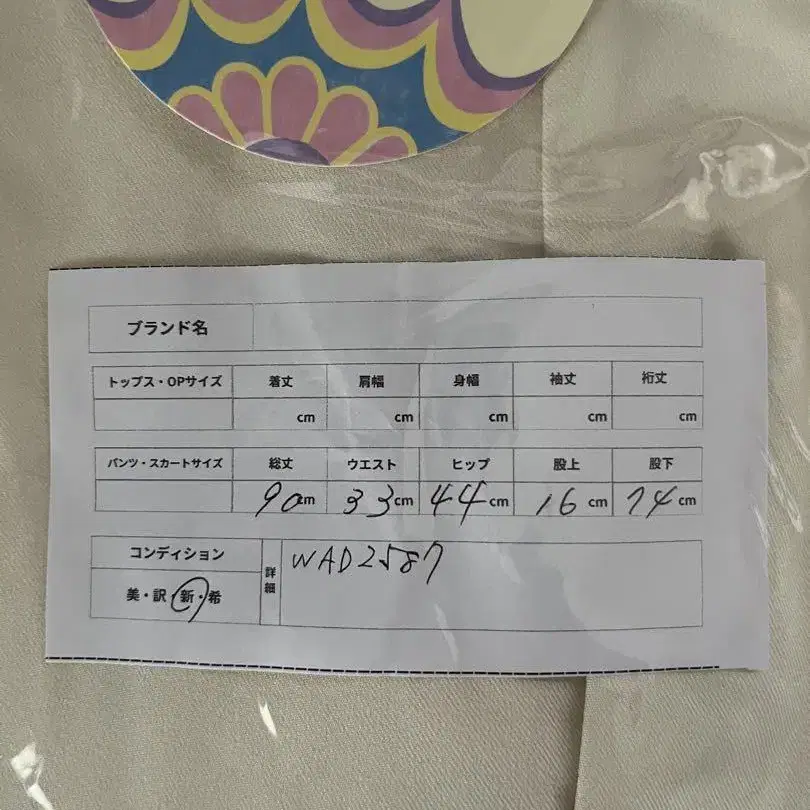 ブランド名
トップス・OPサイズ 着丈 肩幅 身幅 袖丈 裄丈
cm cm cm cm cm
パンツ・スカートサイズ 総丈 ウエスト ヒップ 股上 股下
90cm 33cm 44cm 16cm 74cm
コンディション
詳細
WAD2587
美・訳・新・希